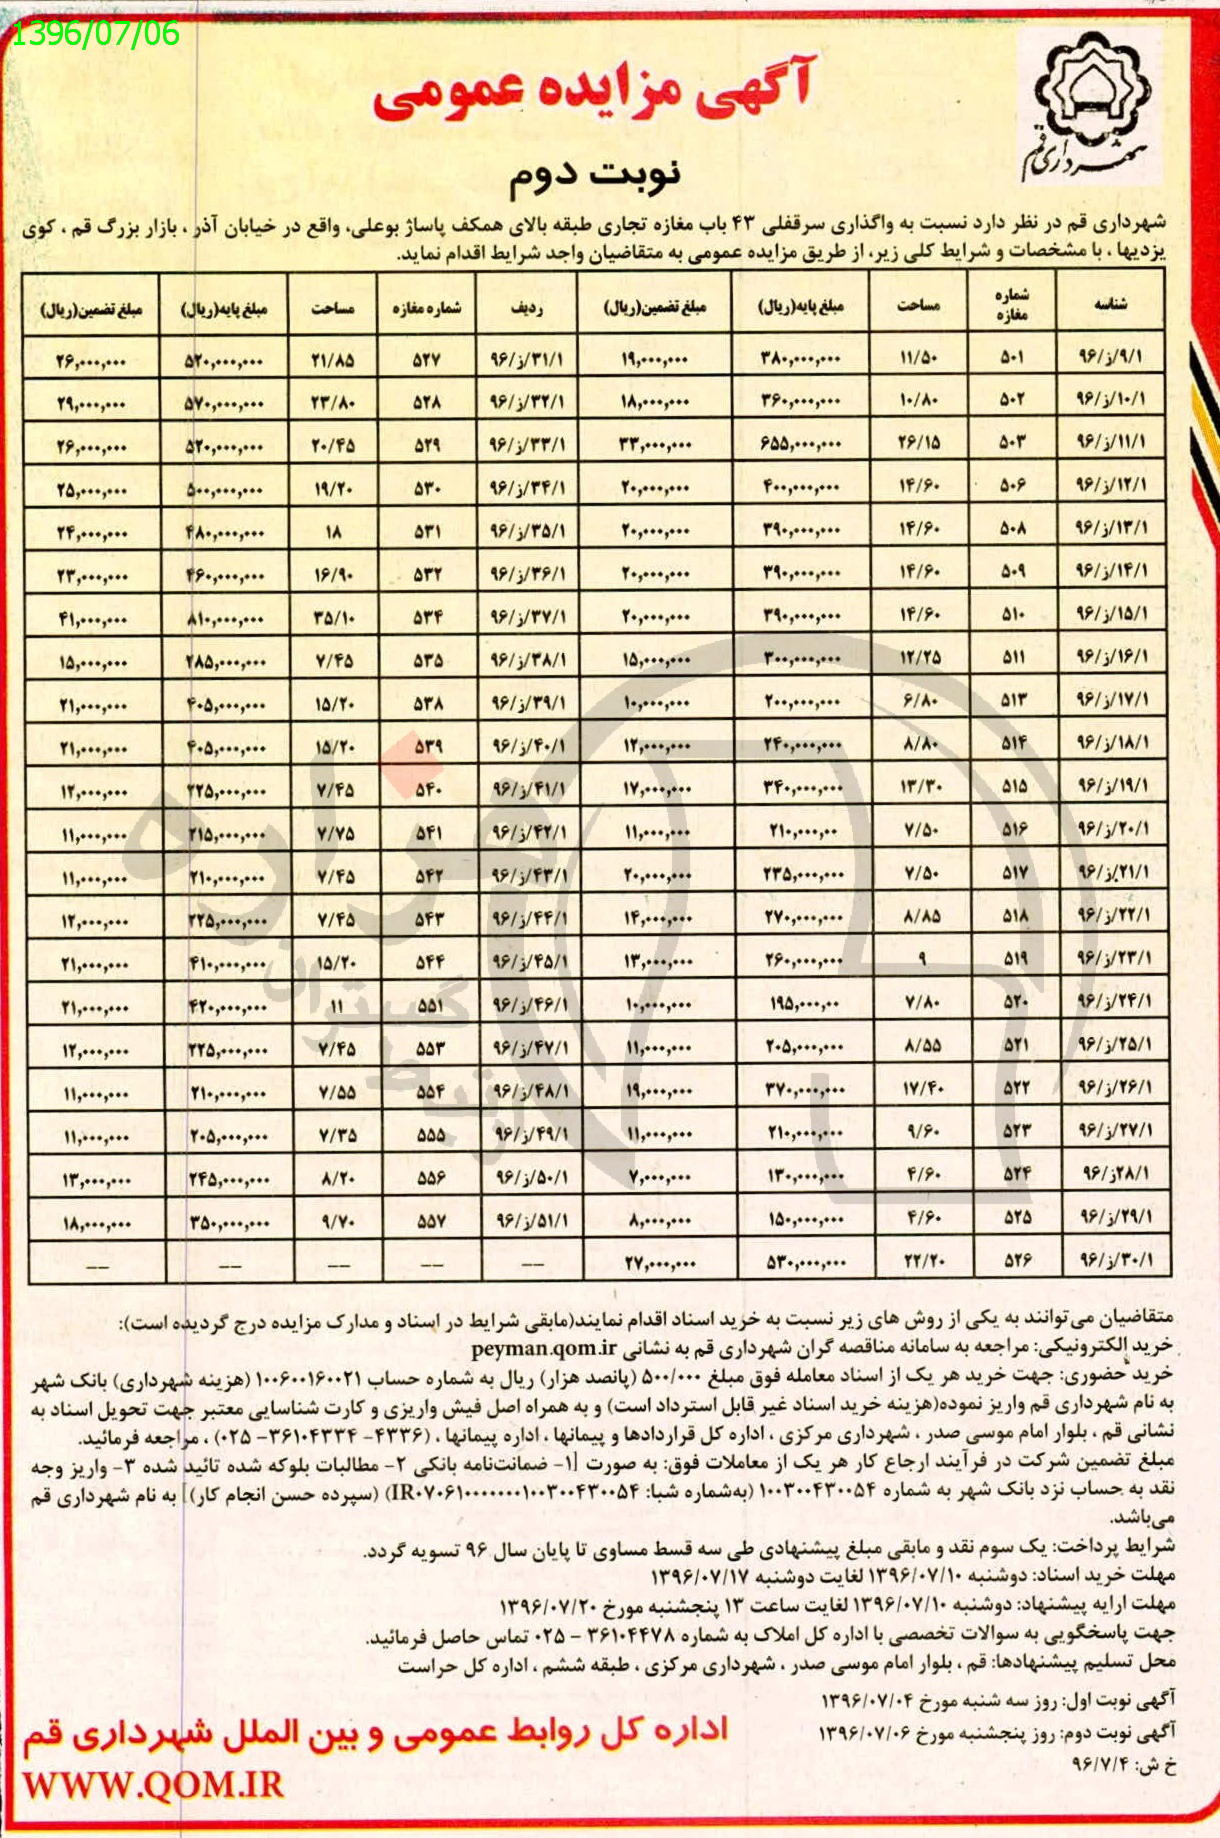 1396/07/06
شهرداری قم
آگهی مزایده عمومی
نوبت دوم
شهرداری قم در نظر دارد نسبت به واگذاری سرقفلی ۴۳ باب مغازه تجاری طبقه بالای همکف پاساژ بوعلی، واقع در خیابان آذر ، بازار بزرگ قم ، کوی
یزدیها ، با مشخصات و شرایط کلی زیر، از طریق مزایده عمومی به متقاضیان واجد شرایط اقدام نماید.
شناسه شماره مغازه مساحت مبلغ پایه(ریال) مبلغ تضمین(ریال) ردیف شماره مغازه مساحت مبلغ پایه(ریال) مبلغ تضمین(ریال)
۹/۱/ز/۹۶ ۵۰۱ ۱۱/۵۰ ۳۸۰,۰۰۰,۰۰۰ ۱۹,۰۰۰,۰۰۰ ۳۱/۱/ز/۹۶ ۵۲۷ ۲۱/۸۵ ۵۲۰,۰۰۰,۰۰۰ ۲۶,۰۰۰,۰۰۰
۱۰/۱/ز/۹۶ ۵۰۲ ۱۰/۸۰ ۳۶۰,۰۰۰,۰۰۰ ۱۸,۰۰۰,۰۰۰ ۳۲/۱/ز/۹۶ ۵۲۸ ۲۳/۸۰ ۵۷۰,۰۰۰,۰۰۰ ۲۹,۰۰۰,۰۰۰
۱۱/۱/ز/۹۶ ۵۰۳ ۲۶/۱۵ ۶۵۵,۰۰۰,۰۰۰ ۳۳,۰۰۰,۰۰۰ ۳۳/۱/ز/۹۶ ۵۲۹ ۲۰/۴۵ ۵۲۰,۰۰۰,۰۰۰ ۲۶,۰۰۰,۰۰۰
۱۲/۱/ز/۹۶ ۵۰۶ ۱۴/۶۰ ۴۰۰,۰۰۰,۰۰۰ ۲۰,۰۰۰,۰۰۰ ۳۴/۱/ز/۹۶ ۵۳۰ ۱۹/۲۰ ۵۰۰,۰۰۰,۰۰۰ ۲۵,۰۰۰,۰۰۰
۱۳/۱/ز/۹۶ ۵۰۸ ۱۴/۶۰ ۳۹۰,۰۰۰,۰۰۰ ۲۰,۰۰۰,۰۰۰ ۳۵/۱/ز/۹۶ ۵۳۱ ۱۸ ۴۸۰,۰۰۰,۰۰۰ ۲۴,۰۰۰,۰۰۰
۱۴/۱/ز/۹۶ ۵۰۹ ۱۴/۶۰ ۳۹۰,۰۰۰,۰۰۰ ۲۰,۰۰۰,۰۰۰ ۳۶/۱/ز/۹۶ ۵۳۲ ۱۶/۹۰ ۴۶۰,۰۰۰,۰۰۰ ۲۳,۰۰۰,۰۰۰
۱۵/۱/ز/۹۶ ۵۱۰ ۱۴/۶۰ ۳۹۰,۰۰۰,۰۰۰ ۲۰,۰۰۰,۰۰۰ ۳۷/۱/ز/۹۶ ۵۳۴ ۳۵/۱۰ ۸۱۰,۰۰۰,۰۰۰ ۴۱,۰۰۰,۰۰۰
۱۶/۱/ز/۹۶ ۵۱۱ ۱۲/۲۵ ۳۰۰,۰۰۰,۰۰۰ ۱۵,۰۰۰,۰۰۰ ۳۸/۱/ز/۹۶ ۵۳۵ ۷/۴۵ ۲۸۵,۰۰۰,۰۰۰ ۱۵,۰۰۰,۰۰۰
۱۷/۱/ز/۹۶ ۵۱۳ ۶/۸۰ ۲۰۰,۰۰۰,۰۰۰ ۱۰,۰۰۰,۰۰۰ ۳۹/۱/ز/۹۶ ۵۳۸ ۱۵/۲۰ ۴۰۵,۰۰۰,۰۰۰ ۲۱,۰۰۰,۰۰۰
۱۸/۱/ز/۹۶ ۵۱۴ ۸/۸۰ ۲۴۰,۰۰۰,۰۰۰ ۱۲,۰۰۰,۰۰۰ ۴۰/۱/ز/۹۶ ۵۳۹ ۱۵/۲۰ ۴۰۵,۰۰۰,۰۰۰ ۲۱,۰۰۰,۰۰۰
۱۹/۱/ز/۹۶ ۵۱۵ ۱۳/۳۰ ۳۴۰,۰۰۰,۰۰۰ ۱۷,۰۰۰,۰۰۰ ۴۱/۱/ز/۹۶ ۵۴۰ ۷/۴۵ ۲۲۵,۰۰۰,۰۰۰ ۱۲,۰۰۰,۰۰۰
۲۰/۱/ز/۹۶ ۵۱۶ ۷/۵۰ ۲۱۰,۰۰۰,۰۰ ۱۱,۰۰۰,۰۰۰ ۴۲/۱/ز/۹۶ ۵۴۱ ۷/۷۵ ۲۱۵,۰۰۰,۰۰۰ ۱۱,۰۰۰,۰۰۰
۲۱/۱/ز/۹۶ ۵۱۷ ۷/۵۰ ۲۳۵,۰۰۰,۰۰۰ ۲۰,۰۰۰,۰۰۰ ۴۳/۱/ز/۹۶ ۵۴۲ ۷/۴۵ ۲۱۰,۰۰۰,۰۰۰ ۱۱,۰۰۰,۰۰۰
۲۲/۱/ز/۹۶ ۵۱۸ ۸/۸۵ ۲۷۰,۰۰۰,۰۰۰ ۱۴,۰۰۰,۰۰۰ ۴۴/۱/ز/۹۶ ۵۴۳ ۷/۴۵ ۲۲۵,۰۰۰,۰۰۰ ۱۲,۰۰۰,۰۰۰
۲۳/۱/ز/۹۶ ۵۱۹ ۹ ۲۶۰,۰۰۰,۰۰۰ ۱۳,۰۰۰,۰۰۰ ۴۵/۱/ز/۹۶ ۵۴۴ ۱۵/۲۰ ۴۱۰,۰۰۰,۰۰۰ ۲۱,۰۰۰,۰۰۰
۲۴/۱/ز/۹۶ ۵۲۰ ۷/۸۰ ۱۹۵,۰۰۰,۰۰ ۱۰,۰۰۰,۰۰۰ ۴۶/۱/ز/۹۶ ۵۵۱ ۱۱ ۴۲۰,۰۰۰,۰۰۰ ۲۱,۰۰۰,۰۰۰
۲۵/۱/ز/۹۶ ۵۲۱ ۸/۵۵ ۲۰۵,۰۰۰,۰۰۰ ۱۱,۰۰۰,۰۰۰ ۴۷/۱/ز/۹۶ ۵۵۳ ۷/۴۵ ۲۲۵,۰۰۰,۰۰۰ ۱۲,۰۰۰,۰۰۰
۲۶/۱/ز/۹۶ ۵۲۲ ۱۷/۴۰ ۳۷۰,۰۰۰,۰۰۰ ۱۹,۰۰۰,۰۰۰ ۴۸/۱/ز/۹۶ ۵۵۴ ۷/۵۵ ۲۱۰,۰۰۰,۰۰۰ ۱۱,۰۰۰,۰۰۰
۲۷/۱/ز/۹۶ ۵۲۳ ۹/۶۰ ۲۱۰,۰۰۰,۰۰۰ ۱۱,۰۰۰,۰۰۰ ۴۹/۱/ز/۹۶ ۵۵۵ ۷/۳۵ ۲۰۵,۰۰۰,۰۰۰ ۱۱,۰۰۰,۰۰۰
۲۸/۱ز/۹۶ ۵۲۴ ۴/۶۰ ۱۳۰,۰۰۰,۰۰۰ ۷,۰۰۰,۰۰۰ ۵۰/۱/ز/۹۶ ۵۵۶ ۸/۲۰ ۲۴۵,۰۰۰,۰۰۰ ۱۳,۰۰۰,۰۰۰
۲۹/۱/ز/۹۶ ۵۲۵ ۴/۶۰ ۱۵۰,۰۰۰,۰۰۰ ۸,۰۰۰,۰۰۰ ۵۱/۱/ز/۹۶ ۵۵۷ ۹/۷۰ ۳۵۰,۰۰۰,۰۰۰ ۱۸,۰۰۰,۰۰۰
۳۰/۱/ز/۹۶ ۵۲۶ ۲۲/۲۰ ۵۳۰,۰۰۰,۰۰۰ ۲۷,۰۰۰,۰۰۰ -- -- -- -- --
متقاضیان می‌توانند به یکی از روش های زیر نسبت به خرید اسناد اقدام نمایند(مابقی شرایط در اسناد و مدارک مزایده درج گردیده است):
خرید الکترونیکی: مراجعه به سامانه مناقصه گران شهرداری قم به نشانی peyman.qom.ir
خرید حضوری: جهت خرید هر یک از اسناد معامله فوق مبلغ ۵۰۰/۰۰۰ (پانصد هزار) ریال به شماره حساب ۱۰۰۶۰۰۱۶۰۰۲۱ (هزینه شهرداری) بانک شهر
به نام شهرداری قم واریز نموده(هزینه خرید اسناد غیر قابل استرداد است) و به همراه اصل فیش واریزی و کارت شناسایی معتبر جهت تحویل اسناد به
نشانی قم ، بلوار امام موسی صدر ، شهرداری مرکزی ، اداره کل قراردادها و پیمانها ، اداره پیمانها ، (۴۳۳۶- ۳۶۱۰۴۳۳۴- ۰۲۵) ، مراجعه فرمائید.
مبلغ تضمین شرکت در فرآیند ارجاع کار هر یک از معاملات فوق: به صورت [۱- ضمانت‌نامه بانکی ۲- مطالبات بلوکه شده تائید شده ۳- واریز وجه
نقد به حساب نزد بانک شهر به شماره ۱۰۰۳۰۰۴۳۰۰۵۴ (به‌شماره شبا: IR۰۷۰۶۱۰۰۰۰۰۰۰۱۰۰۳۰۰۴۳۰۰۵۴) (سپرده حسن انجام کار)] به نام شهرداری قم
می‌باشد.
شرایط پرداخت: یک سوم نقد و مابقی مبلغ پیشنهادی طی سه قسط مساوی تا پایان سال ۹۶ تسویه گردد.
مهلت خرید اسناد: دوشنبه ۱۳۹۶/۰۷/۱۰ لغایت دوشنبه ۱۳۹۶/۰۷/۱۷
مهلت ارایه پیشنهاد: دوشنبه ۱۳۹۶/۰۷/۱۰ لغایت ساعت ۱۳ پنجشنبه مورخ ۱۳۹۶/۰۷/۲۰
جهت پاسخگویی به سوالات تخصصی با اداره کل املاک به شماره ۳۶۱۰۴۴۷۸ - ۰۲۵ تماس حاصل فرمائید.
محل تسلیم پیشنهادها: قم ، بلوار امام موسی صدر ، شهرداری مرکزی ، طبقه ششم ، اداره کل حراست
آگهی نوبت اول: روز سه شنبه مورخ ۱۳۹۶/۰۷/۰۴
آگهی نوبت دوم: روز پنجشنبه مورخ ۱۳۹۶/۰۷/۰۶
خ ش: ۹۶/۷/۴
اداره کل روابط عمومی و بین الملل شهرداری قم
WWW.QOM.IR